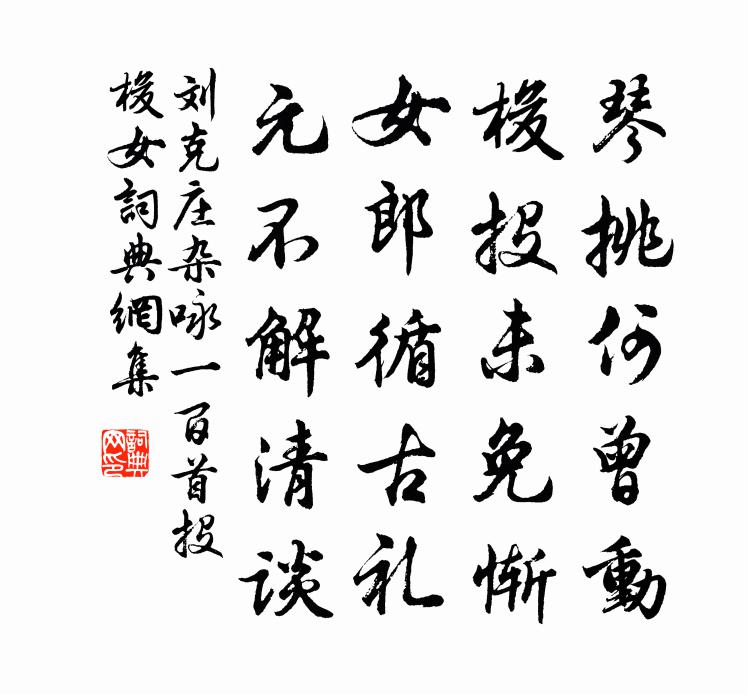 琴挑何曾動
梭投未免慚
女郎循古礼
元不解清谈
刘克庄杂咏一百首投
梭女詞典網集
詞典網印